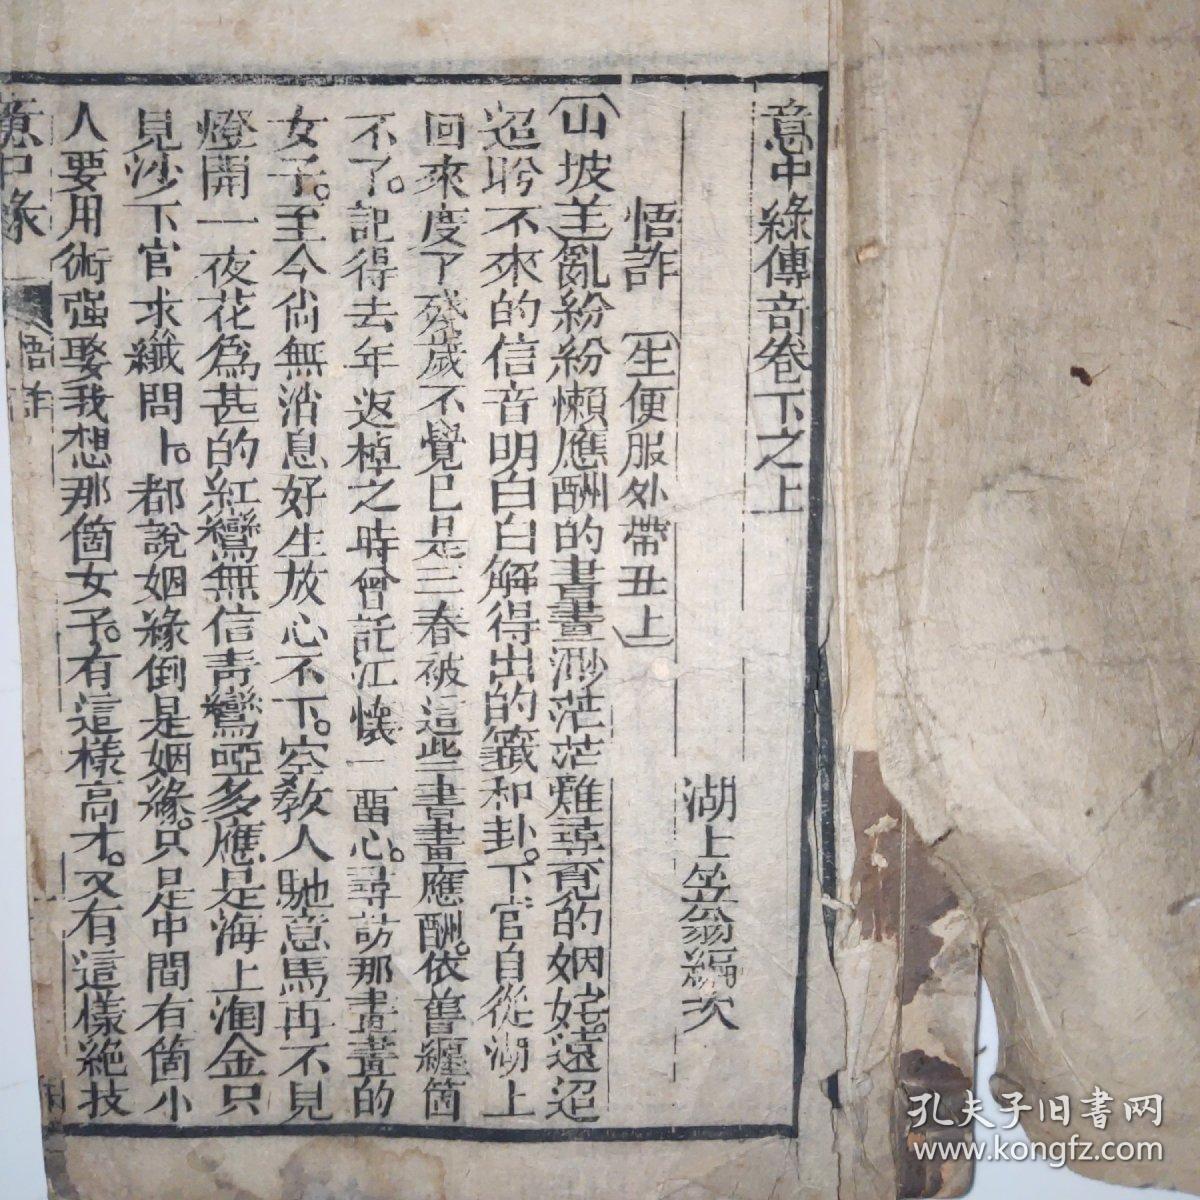 意中緣傳奇卷下之上
湖上笠翁編次
悟詐 (生便服外帶丑上)
(山坡羊)亂紛紛懶應酬的書畫渺茫茫難尋覓的姻婭遠迢
迢盼不來的信音明白白解得出的籤和卦下官自從湖上
回來度了殘歲不覺已是三春被這些書畫應酬依舊纏箇
不了記得去年返棹之時曾託江懷一留心尋訪那畫畫的
女子至今尚無消息好生放心不下空教人馳意馬再不見
燈開一夜花為甚的紅鸞無信青鸞啞多應是海上淘金只
見沙下官求籤問卜都說姻緣倒是姻緣只是中間有箇小
人要用術強娶我想那箇女子有這樣高才又有這樣絕技
意中緣 悟詐
孔夫子旧書网
www.kongfz.com